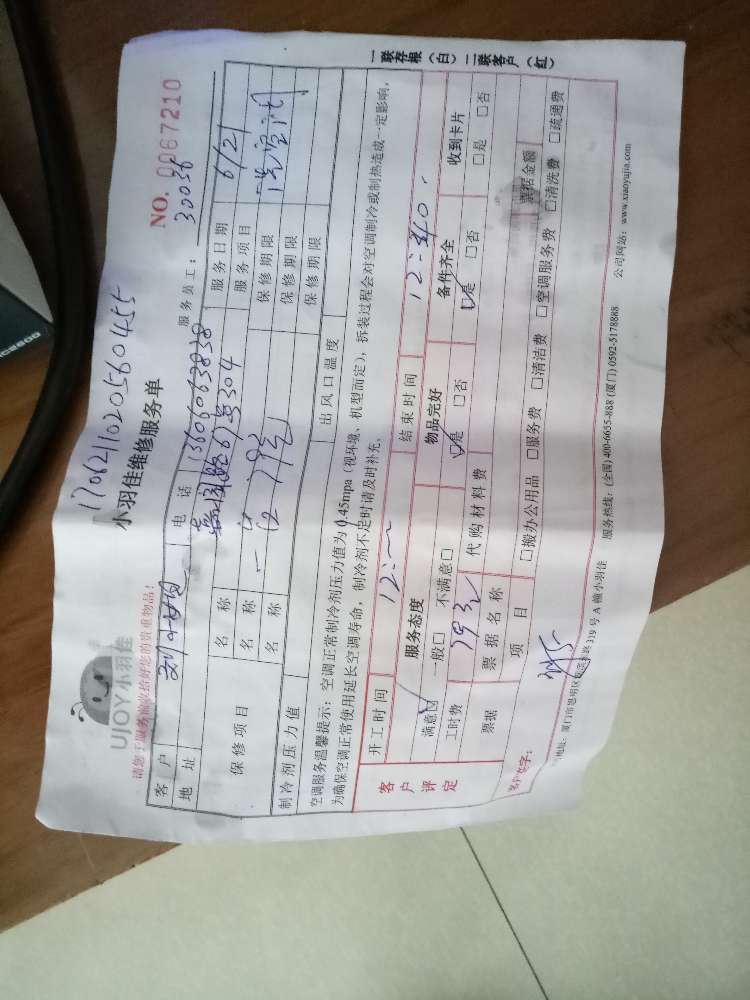 1706211020560455
NO. 0067210
UJOY小羽佳
小羽佳维修服务单
服务员工： 30036
请您于服务前收拾好您的贵重物品！
客户 电话 13606063838 服务日期 6/21
地址 6号304 服务项目 洗空调
保修项目 名称 保修期限
名称 保修期限
名称 保修期限
制冷剂压力值 出风口温度
空调服务温馨提示：空调正常制冷剂压力值为0.45mpa（视环境、机型而定），拆装过程会对空调制冷或制热造成一定影响，
为确保空调正常使用延长空调寿命，制冷剂不足时请及时补充。
开工时间 结束时间 12:40
客户评定 服务态度 物品完好 备件齐全 收到卡片
满意☑ 一般□ 不满意□ ☑是 □否 ☑是 □否 □是 □否
工时费 193元 代购材料费
票据 票据名称 票据金额
项目 □搬办公用品 □服务费 □清洁费 □空调服务费 □清洗费 □疏通费
客户签字：
地址：厦门市思明区 319号A幢小羽佳 服务热线：(全国) 400-6655-888 (厦门) 0592-5178888 公司网站：www.xiaoyujia.com
一联存根（白）二联客户（红）